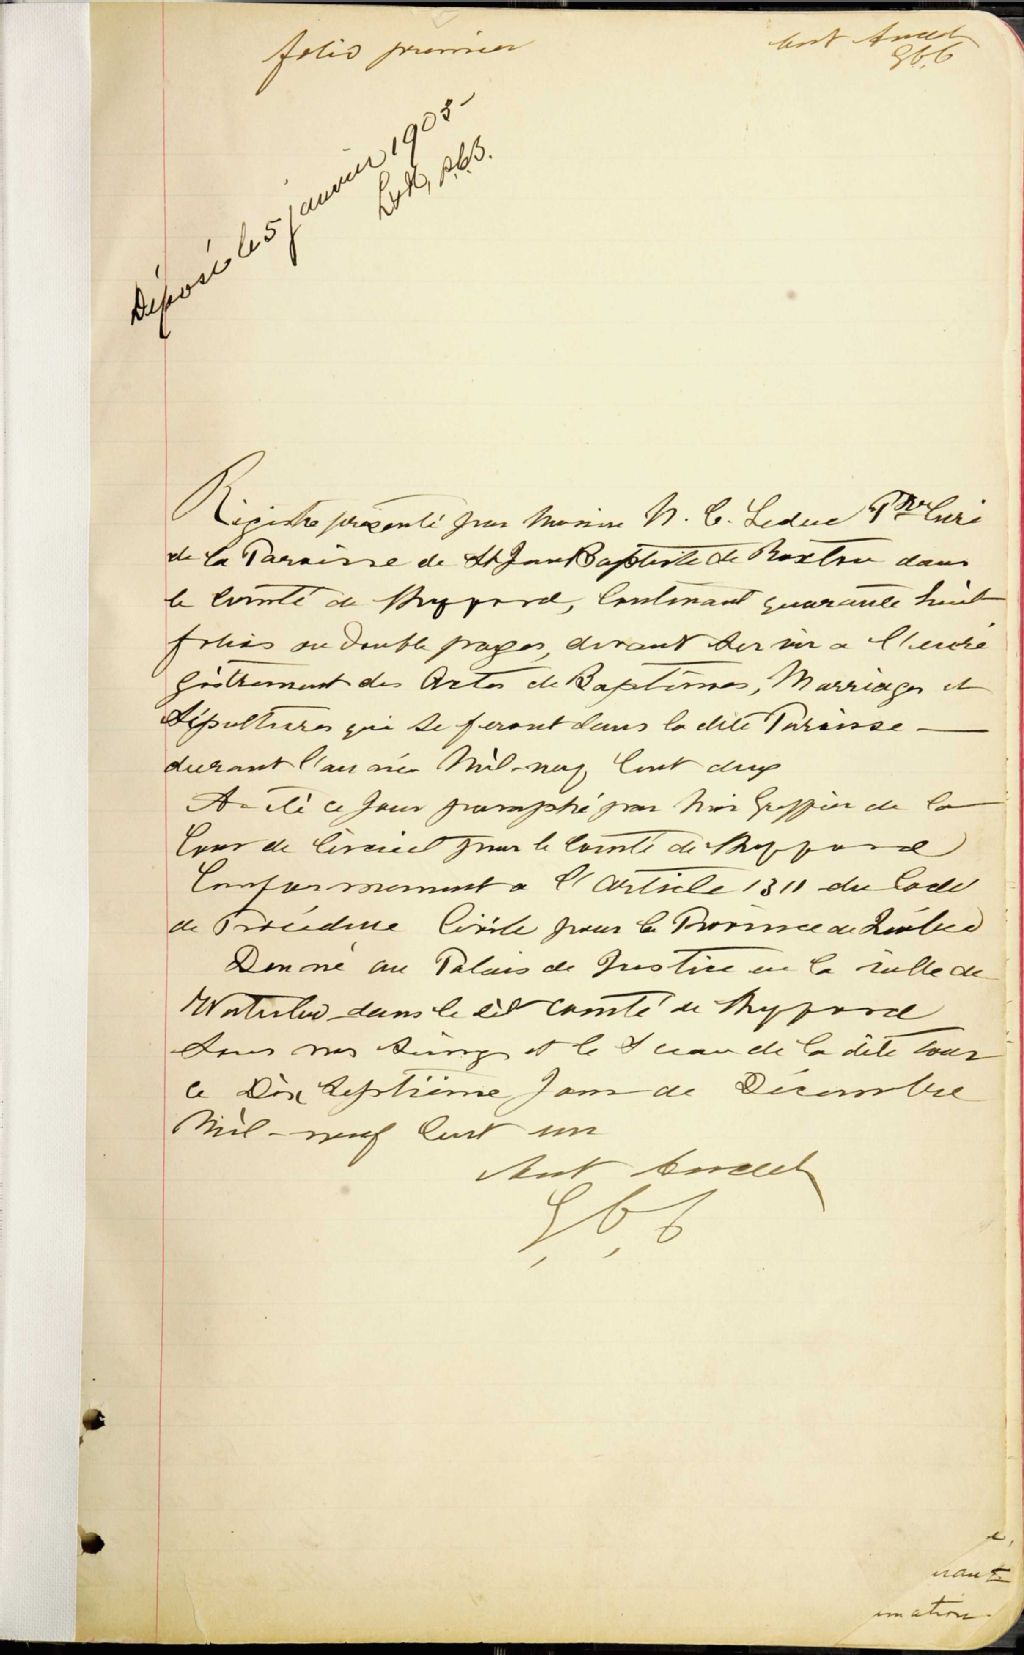 folio premier
Ant Audet
G.C.C
Déposé le 5 janvier 1903-
Registre présenté par Messire N. C. Leduc Ptre Curé
de la Paroisse de St Jean Baptiste de Roxton dans
le Comté de Shefford, Contenant quarante huit
folios ou double pages, devant servir a l'enré
gistrement des Actes de Baptêmes, Marriages et
Sépultures qui se feront dans la dite Paroisse
durant l'année Mil-neuf Cent deux
A été ce Jour paraphé par Moi Greffier de la
Cour de Circuit pour le Comté de Shefford
Conformement a l'Article 1311 du Code
de Procédure Civile pour la Province de Québec
Donné au Palais de Justice en la ville de
Waterloo dans le dit Comté de Shefford
Sous mes Seings et le Sceau de la dite Cour
ce Dix Septième Jour de Décembre
Mil-neuf Cent un
Ant Audet
G, C, C
é,
rant
mation